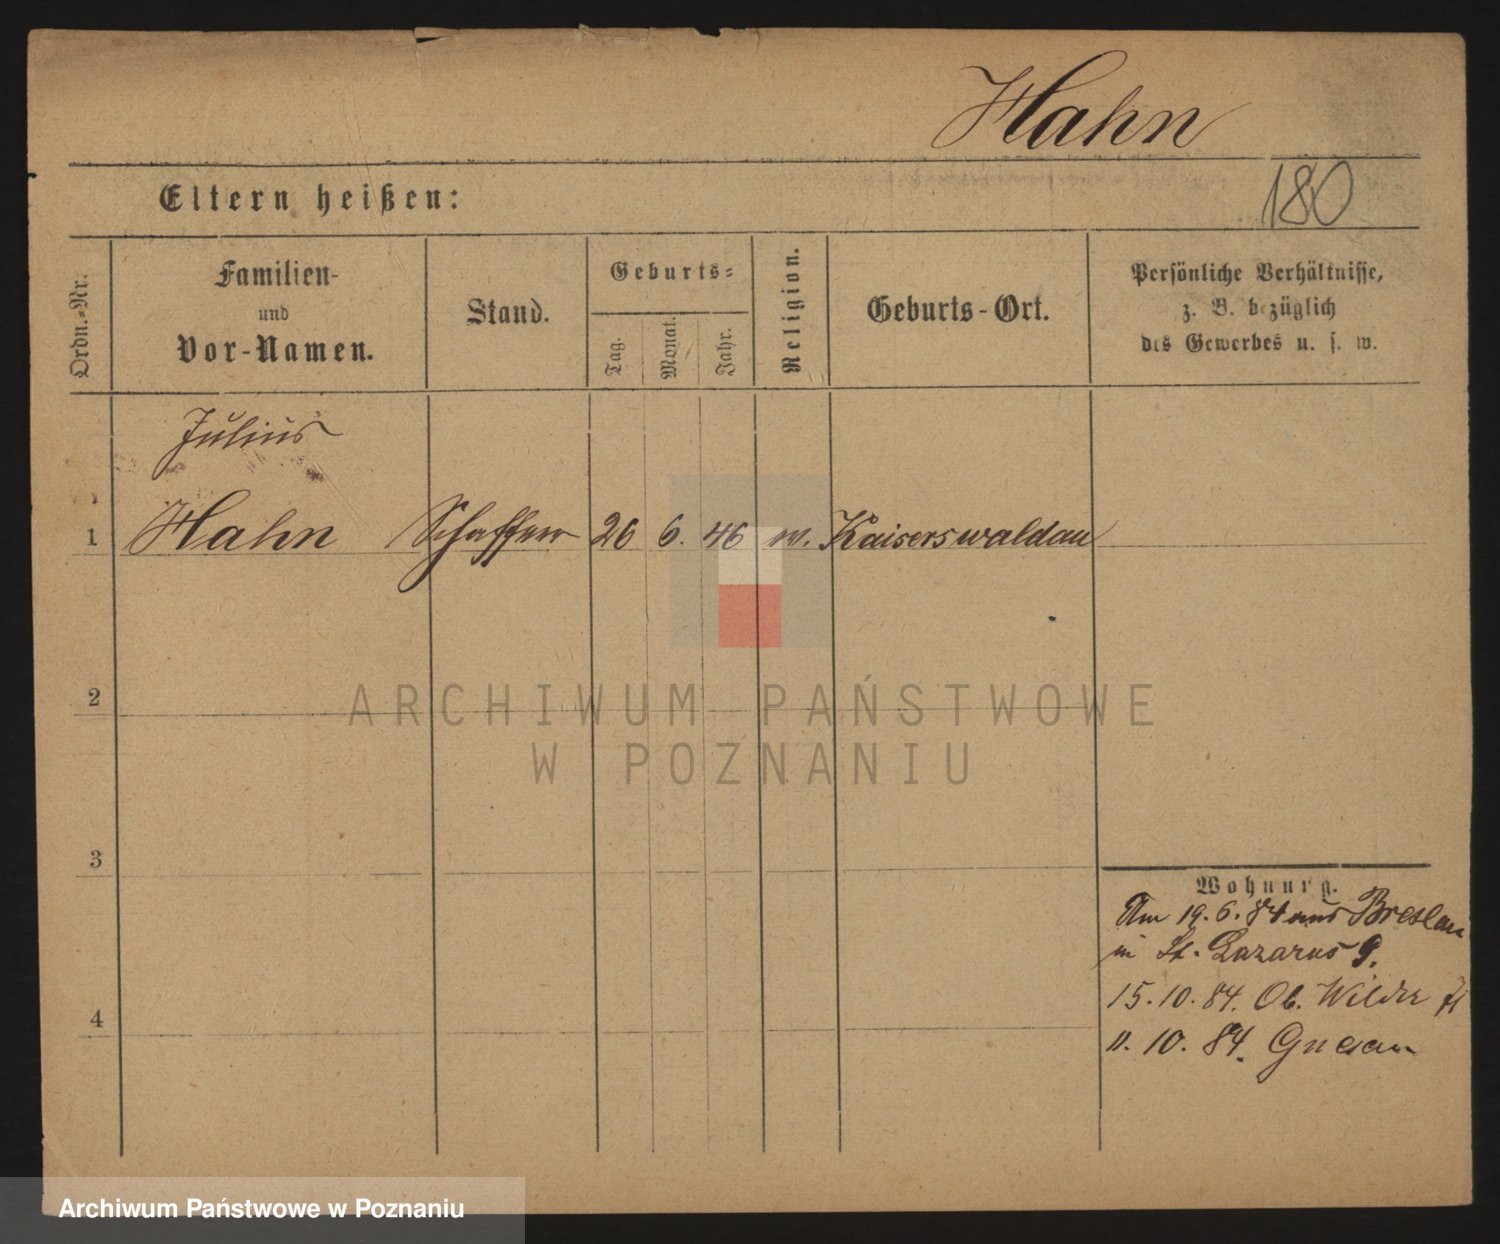 Hahn
Eltern heißen:
180
Ordn.-Nr.
Familien-
und
Vor-Namen.
Stand.
Geburts-
Tag.
Monat.
Jahr.
Religion.
Geburts-Ort.
Persönliche Verhältnisse,
z. B. bezüglich
des Gewerbes u. s. w.
Julius
1 Hahn Schaffner 26 6. 46 Kaiserswaldau
2
ARCHIWUM PAŃSTWOWE
W POZNANIU
3
4
Wohnung.
Am 19.6.84 aus Breslau
in St. Lazarus 9.
15.10.84. Ob. Wilda
10. 84. Gnesen
Archiwum Państwowe w Poznaniu